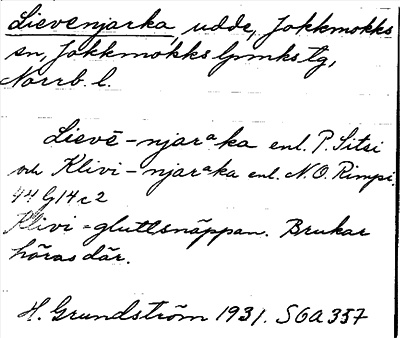 Lievenjarka, udde, Jokkmokks
sn, Jokkmokks lpmks tg,
Norrb. l.
Lievē-njarᵃka enl. P. Sitsi
och Klivi-njarᵃka enl. N.O. Rimpi.
44 G14c2
Klivi = gluttsnäppan. Brukar
höras där.
H. Grundström 1931. SOA 357